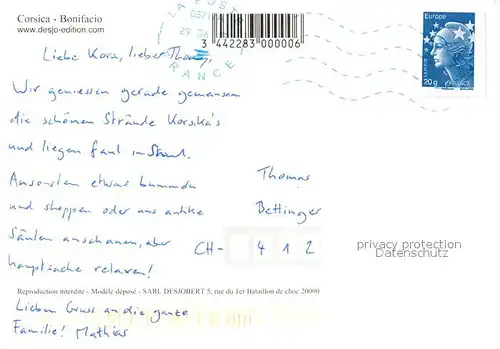 Corsica - Bonifacio
www.desjo-edition.com
LA POSTE
FRANCE
3 442283 000006
Europe
20g
Liebe Kora, lieber Thomas,
Wir geniessen gerade gemeinsam
die schönen Strände Korsika's
und liegen faul im Sand.
Ansonsten etwas bummeln
und shoppen oder uns antike
Säulen anschauen, aber
hauptsache relaxen!
Thomas
Bettinger
CH- 412
privacy protection
Datenschutz
Reproduction interdite - Modèle déposé - SARL DESJOBERT 5, rue du 1er Bataillon de choc 20090
Lieben Gruss an die ganze
Familie! Mathias